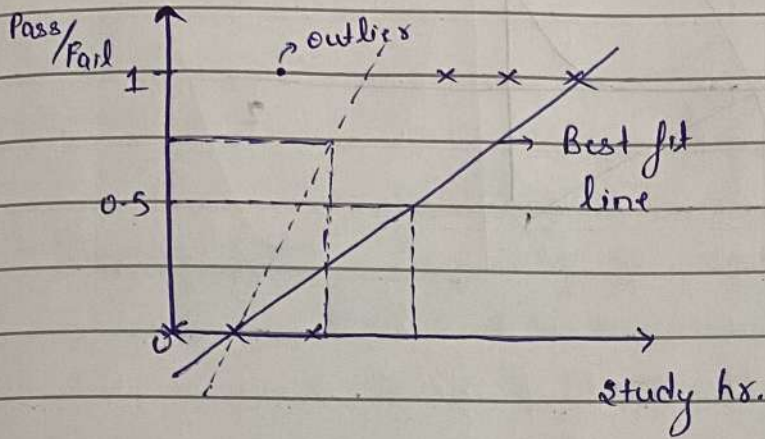 Pass
/Fail
outlier
1
Best fit
line
0.5
0
Study hr.